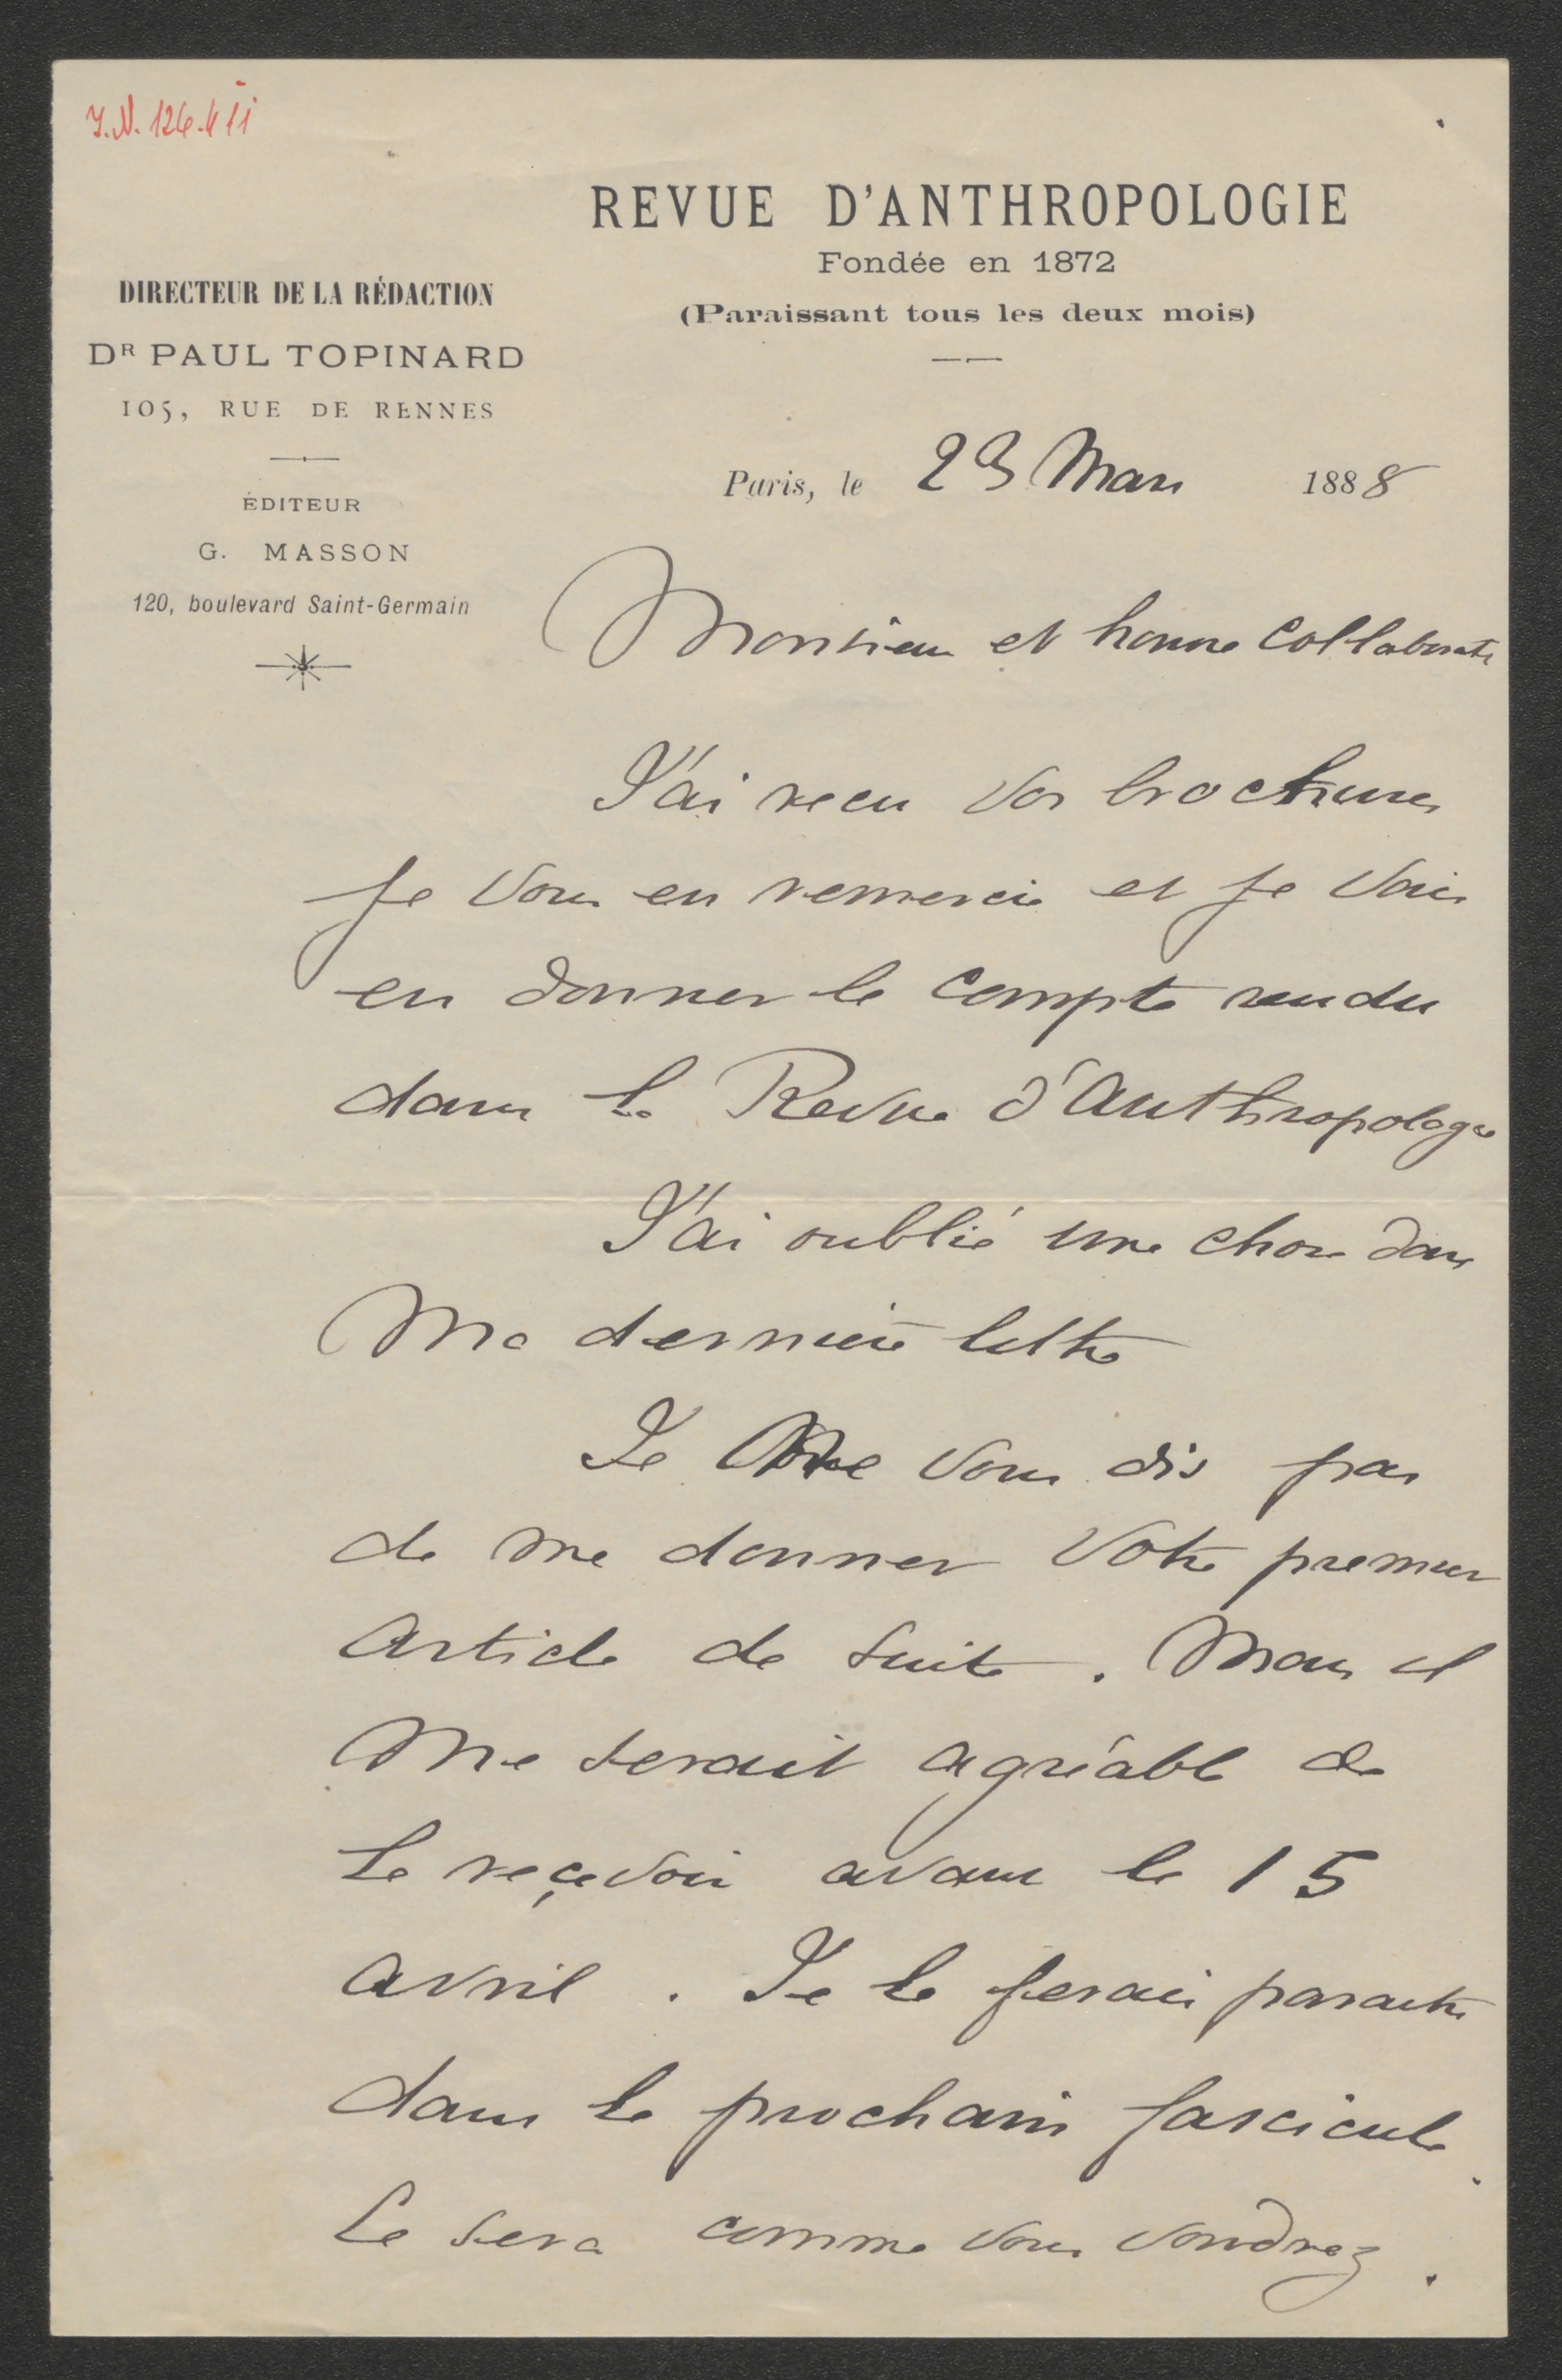 J.N. 126.411
REVUE D'ANTHROPOLOGIE
Fondée en 1872
(Paraissant tous les deux mois)
DIRECTEUR DE LA RÉDACTION
DR PAUL TOPINARD
105, RUE DE RENNES
ÉDITEUR
G. MASSON
120, boulevard Saint-Germain
Paris, le 23 Mars 1888
Monsieur et honoré Collaborateur
J'ai recu vos brochures
je vous en remercie et je vais
en donner le compte rendu
dans la Revue d'Anthropologie
J'ai oublié une chose dans
Ma dernière lettre
Je Ne vous dis pas
de me donner Votre premier
Article de suite. Mais il
Me serait agréable de
le reçevoir avant le 15
avril. Je le ferai paraitre
dans le prochain fascicule
Ce sera comme vous voudrez.